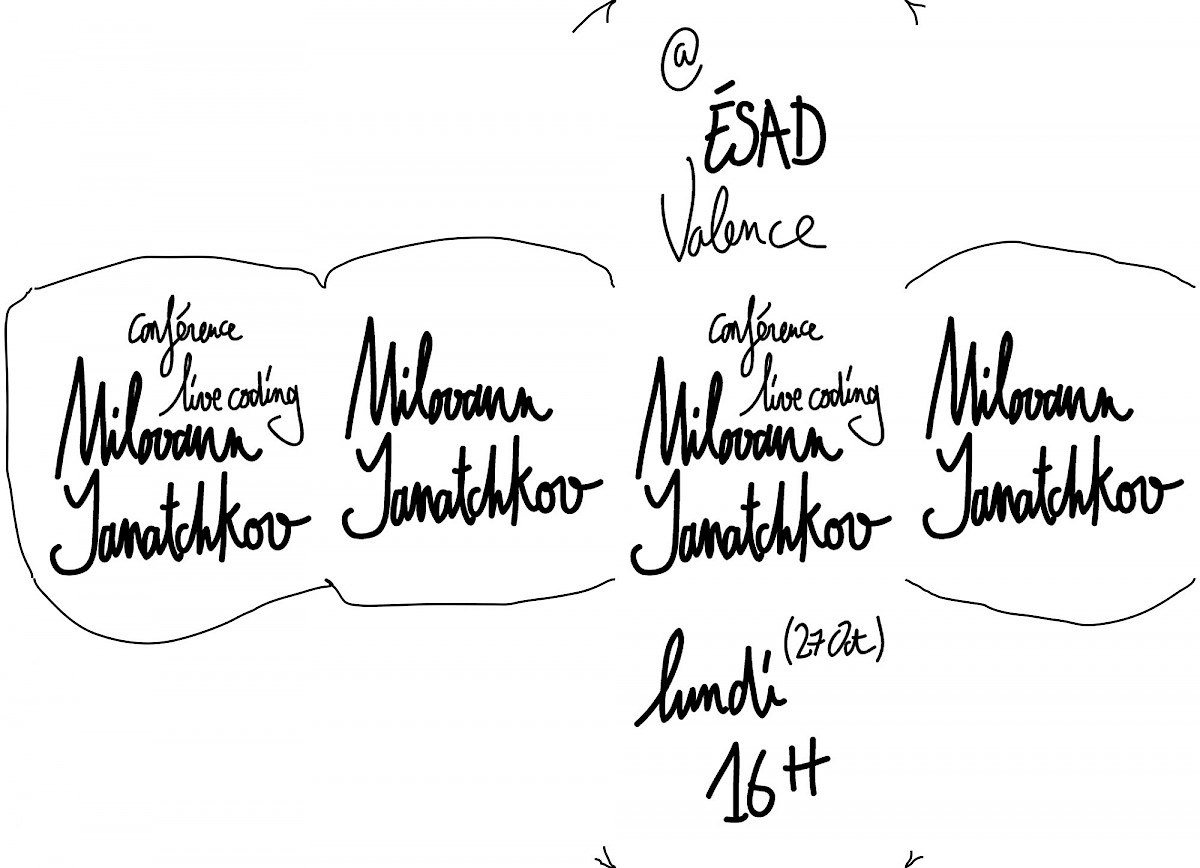 @
ÉSAD
Valence
conférence
live coding
Milovann
Yanatchkov
Milovann
Yanatchkov
conférence
live coding
Milovann
Yanatchkov
Milovann
Yanatchkov
lundi (27 Oct)
16H